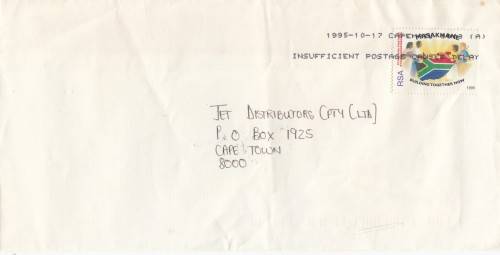 1995-10-17 CAPEMAIL (A)
INSUFFICIENT POSTAGE CAUSES DELAY
MASAKHANE
RSA
BUILDING TOGETHER NOW
1995
JET DISTRIBUTORS (PTY (LTD)
P.O BOX 1925
CAPE TOWN
8000